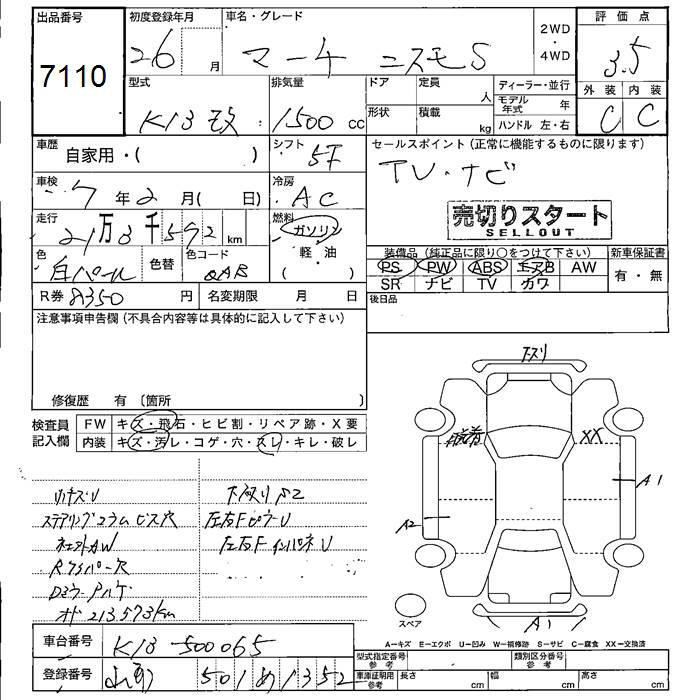 出品番号 初度登録年月 車名・グレード 2WD・4WD 評価点
7110 26 月 マーチ ニスモS 3.5
型式 排気量 ドア 定員 人 ディーラー・並行 外装 内装
K13改 1500cc 形状 積載 kg モデル年式 年 C C
ハンドル 左・右
車歴 自家用・( ) シフト 5F セールスポイント(正常に機能するものに限ります)
TV・ナビ
車検 7年2月( 日) 冷房 AC
売切りスタート
SELLOUT
走行 21万3千592km 燃料 ガソリン
軽・油
色 白パール 色替 色コード QAB
装備品(純正品に限り○をつけて下さい) 新車保証書
PS PW ABS エアB AW 有・無
SR ナビ TV カワ
R券 8350円 名変期限 月 日 後日品
注意事項申告欄(不具合内容等は具体的に記入して下さい)
修復歴 有〔箇所 〕
検査員記入欄 FW キズ・飛石・ヒビ割・リペア跡・X要
内装 キズ・汚レ・コゲ・穴・スレ・キレ・破レ
下スリ
XX
A1
A2
A1
スペア
小キズU 下廻りS2
ステアリングコラムビス穴 左右FピラーU
社外AW 左右FインパネU
オド 213573km
A−キズ E−エクボ U−凹み W−補修跡 S−サビ C−腐食 XX−交換済
車台番号 K13-500065
型式指定番号 参考 類別区分番号 参考
登録番号 501 め 1352
車庫証明用 参考 長さ cm 幅 cm 高さ cm